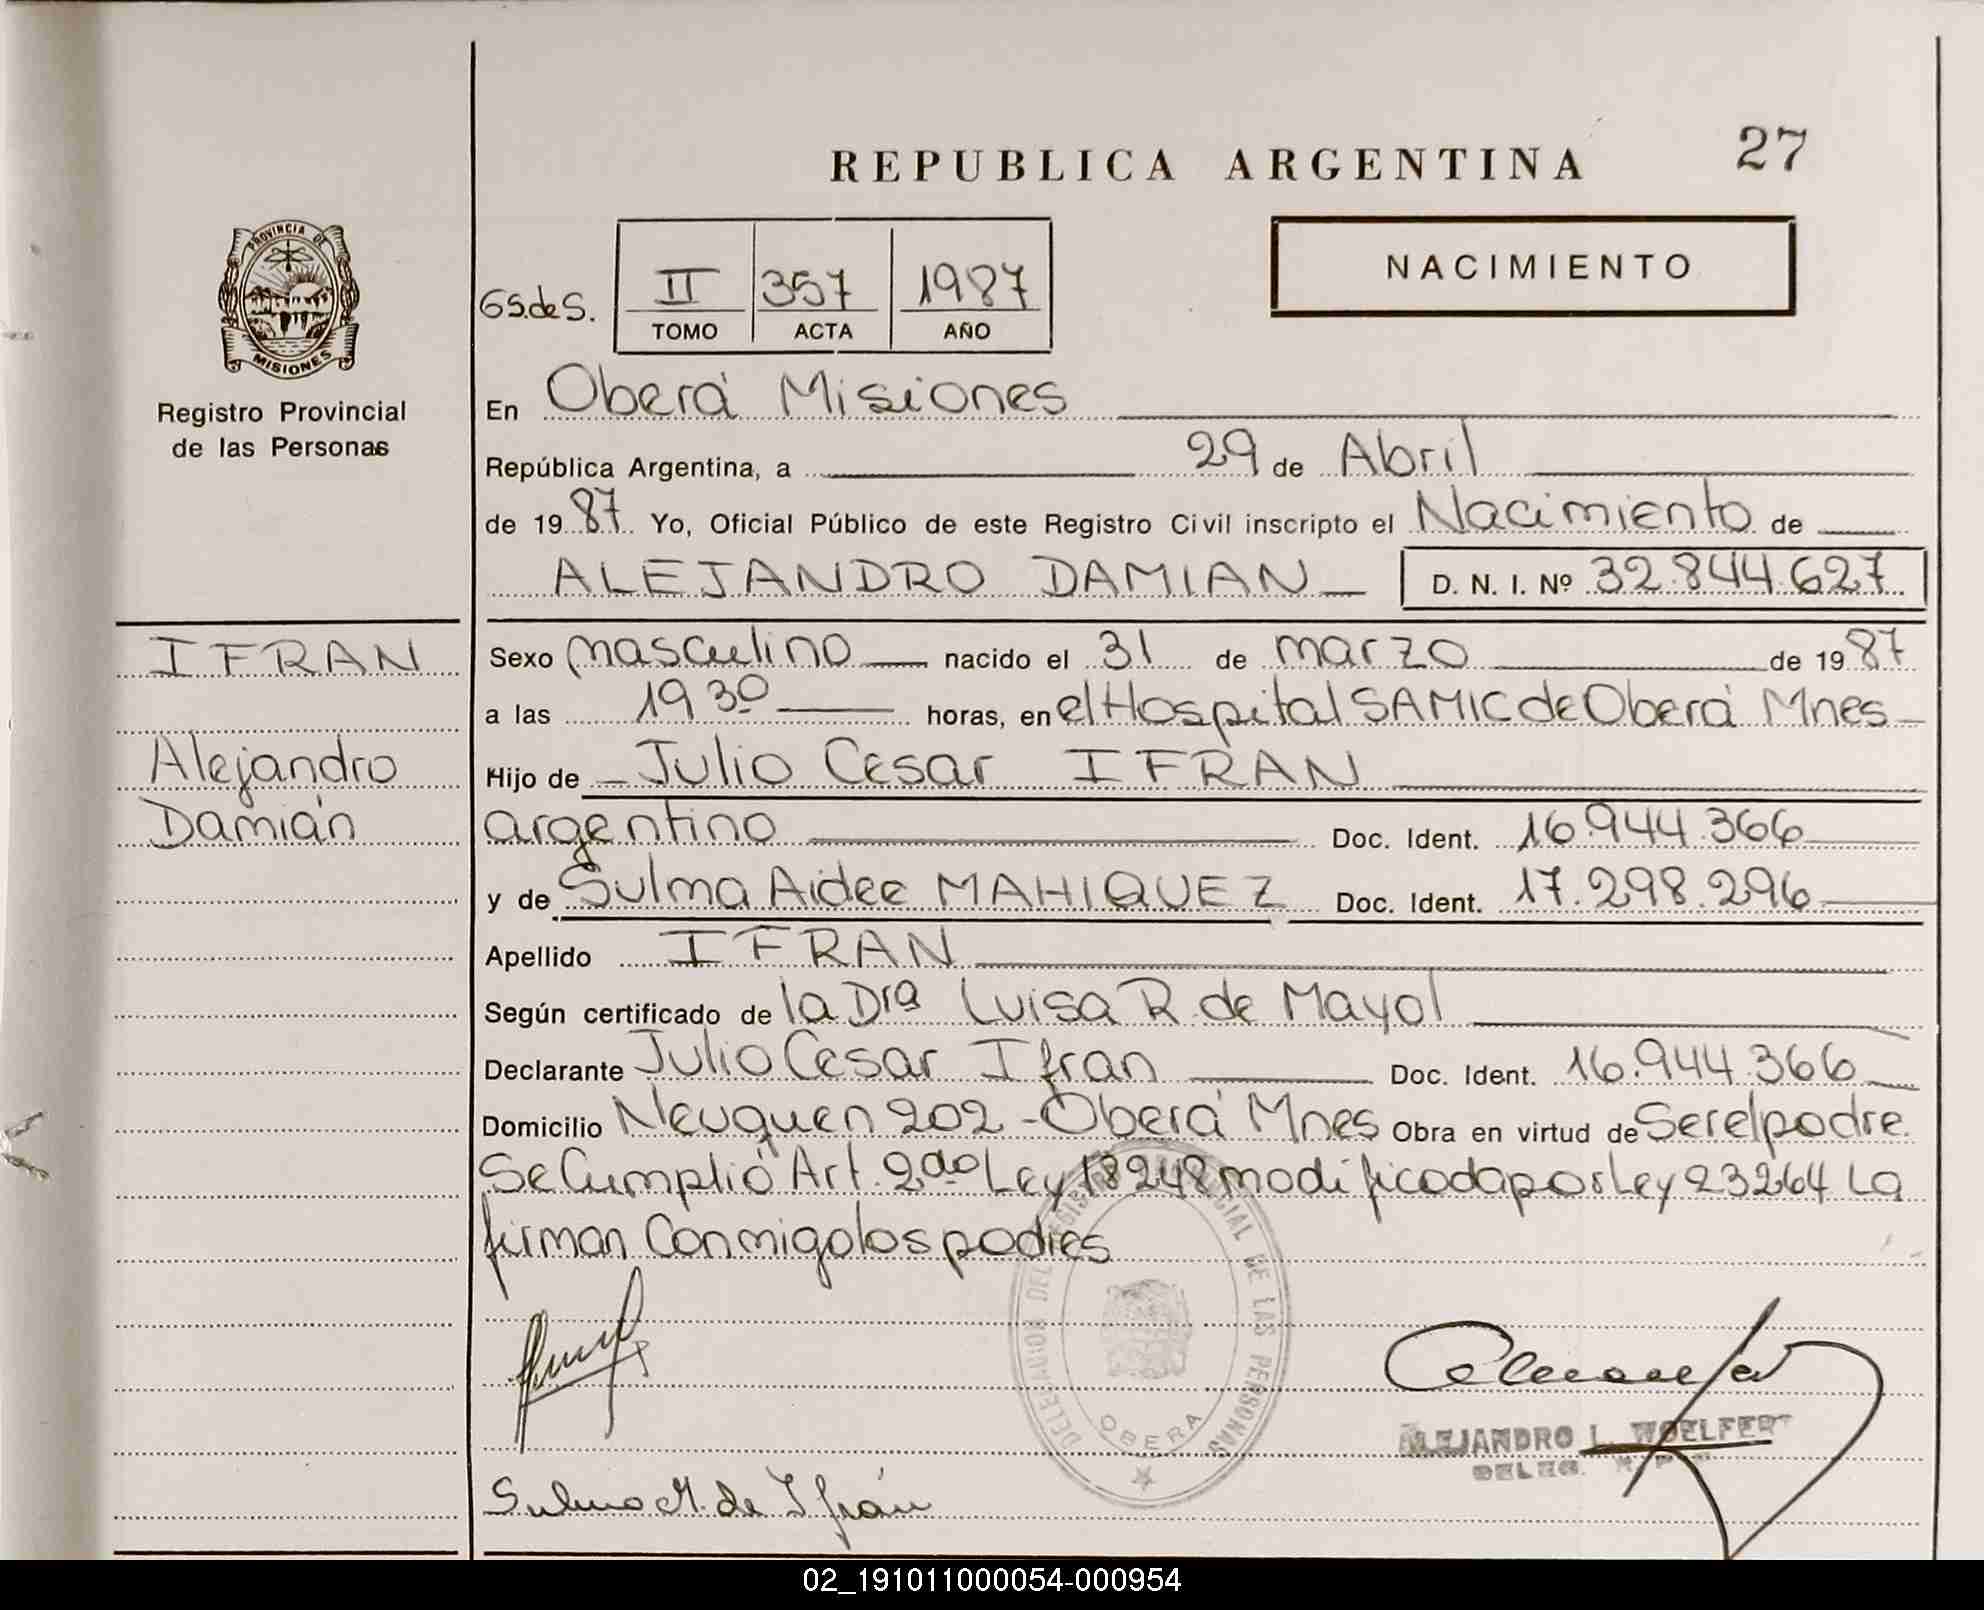 REPUBLICA ARGENTINA
27
PROVINCIA DE
MISIONES
Registro Provincial
de las Personas
II 357 1987
TOMO ACTA AÑO
NACIMIENTO
En Oberá Misiones
República Argentina, a 29 de Abril
de 19 87 Yo, Oficial Público de este Registro Civil inscripto el Nacimiento de
ALEJANDRO DAMIAN D. N. I. Nº 32.844.627
IFRAN
Alejandro
Damián
Sexo masculino nacido el 31 de marzo de 19 87
a las 19 30 horas, en el Hospital SAMIC de Oberá Mnes
Hijo de Julio Cesar IFRAN
argentino Doc. Ident. 16.944.366
y de Sulma Aidee MAHIQUEZ Doc. Ident. 17.298.296
Apellido IFRAN
Según certificado de la Dra Luisa R. de Mayol
Declarante Julio Cesar Ifran Doc. Ident. 16.944.366
Domicilio Neuquen 202 - Oberá Mnes Obra en virtud de Ser el padre.
Se Cumplió Art. 2do Ley 18248 modificada por Ley 23264 La
firman Conmigo los padres
DELEGACION DEL REGISTRO PROVINCIAL DE LAS PERSONAS
OBERA
ALEJANDRO L. WOELFERT
Sulma M. de Ifrán
02_191011000054-000954